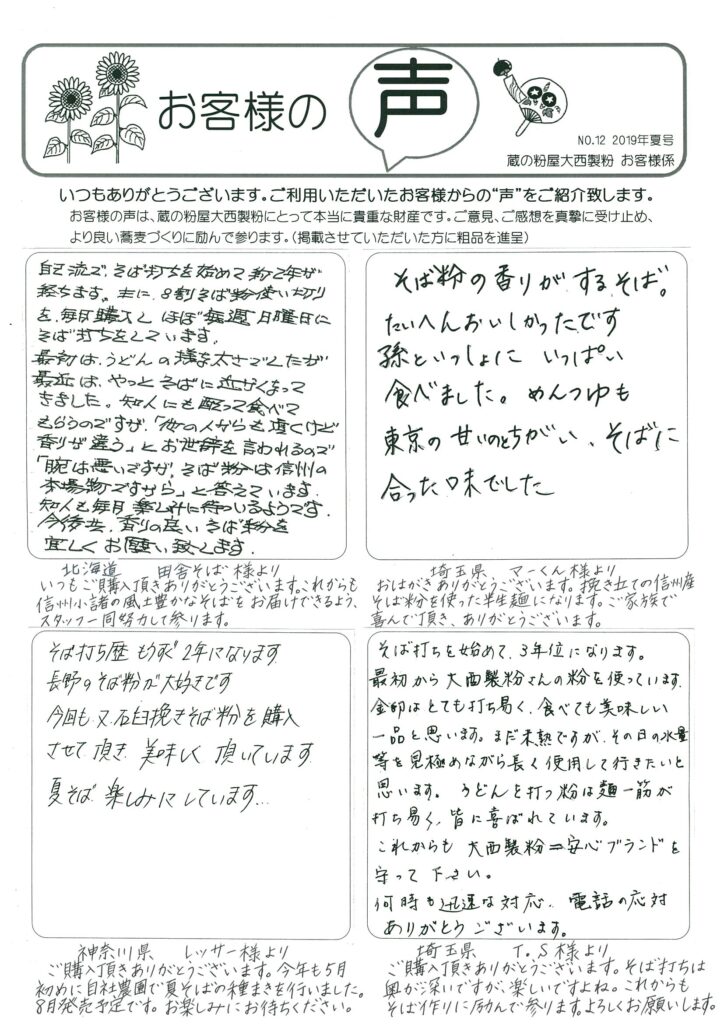 お客様の声
NO.12 2019年夏号
蔵の粉屋大西製粉 お客様係
いつもありがとうございます。ご利用いただいたお客様からの“声”をご紹介致します。
お客様の声は、蔵の粉屋大西製粉にとって本当に貴重な財産です。ご意見、ご感想を真摯に受け止め、
より良い蕎麦づくりに励んで参ります。(掲載させていただいた方に粗品を進呈)
自己流で、そば打ちを始めて約2年が
経ちます。主に、8割そば粉使い切り
を毎日購入し ほぼ毎週日曜日に
そば打ちをしています。
最初は、うどんの様な太さでしたが
最近は、やっとそばに近かくなって
きました。知人にも配って食べて
もらうのですが、「他の人からも頂くけど
香りが違う」とお世辞を言われるので
「腕は悪いですが、そば粉は信州の
本場物ですから」と答えています。
知人も毎月 楽しみに待っているようです。
今後共、香りの良いそば粉を
宜しくお願い致します。
北海道 田舎そば様より
いつもご購入頂きありがとうございます。これからも
信州小諸の風土豊かなそばをお届けできるよう、
スタッフ一同努力して参ります。
そば粉の香りがするそば。
たいへんおいしかったです
孫といっしょに いっぱい
食べました。めんつゆも
東京の甘いのとちがい、そばに
合った味でした
埼玉県 マーくん様より
おはがきありがとうございます。挽き立ての信州産
そば粉を使った半生麺になります。ご家族で
喜んで頂き、ありがとうございます。
そば打ち歴 もうすぐ2年になります
長野のそば粉が大好きです
今回も又、石臼挽きそば粉を購入
させて頂き 美味しく頂いています
夏そば 楽しみにしています…
神奈川県 レッサー様より
ご購入頂きありがとうございます。今年も5月
初めに自社農園で夏そばの種まきを行いました。
8月発売予定です。お楽しみにお待ちください。
そば打ちを始めて、3年位になります。
最初から大西製粉さんの粉を使っています。
金印はとても打ち易く、食べても美味しい
一品と思います。まだ未熟ですが、その日の水量
等を見極めながら長く使用して行きたいと
思います。 うどんを打つ粉は麺一筋が
打ち易く、皆に喜ばれています。
これからも 大西製粉=安心ブランドを
守って下さい。
何時も迅速な対応、電話の応対
ありがとうございます。
埼玉県 T.S様より
ご購入頂きありがとうございます。そば打ちは
奥が深いですが、楽しいですよね。これからも
そば作りに励んで参ります。よろしくお願いします。